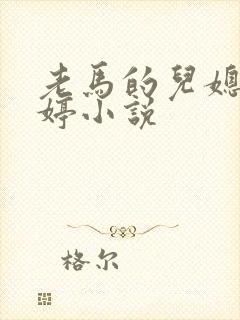 老馬的兒媳
婷小說
格尔